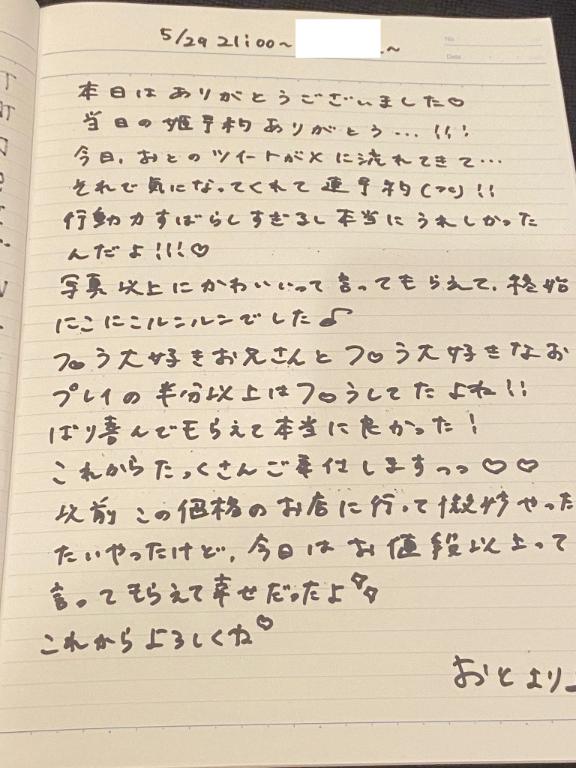 5/29 21:00~ ~
No.
Date
本日はありがとうございました♡
当日の姫予約ありがとう…!!!
今日、おとのツイートがXに流れてきて…
それで気になってくれて速予約(つ⊂)!!
行動力すばらしすぎるし本当にうれしかった
んだよ!!!♡
写真以上にかわいいって言ってもらえて、終始
にこにこルンルンでした♪
フ〇う大好きお兄さんとフ〇う大好きなお
プレイの半分以上はフ〇うしてたよね!!
ばり喜んでもらえて本当に良かった!
これからたっくさんご奉仕しますっっ♡♡
以前この価格のお店に行って微妙やった
たいやったけど、今日はお値段以上って
言ってもらえて幸せだったよ
これからよろしくね♡
おとより